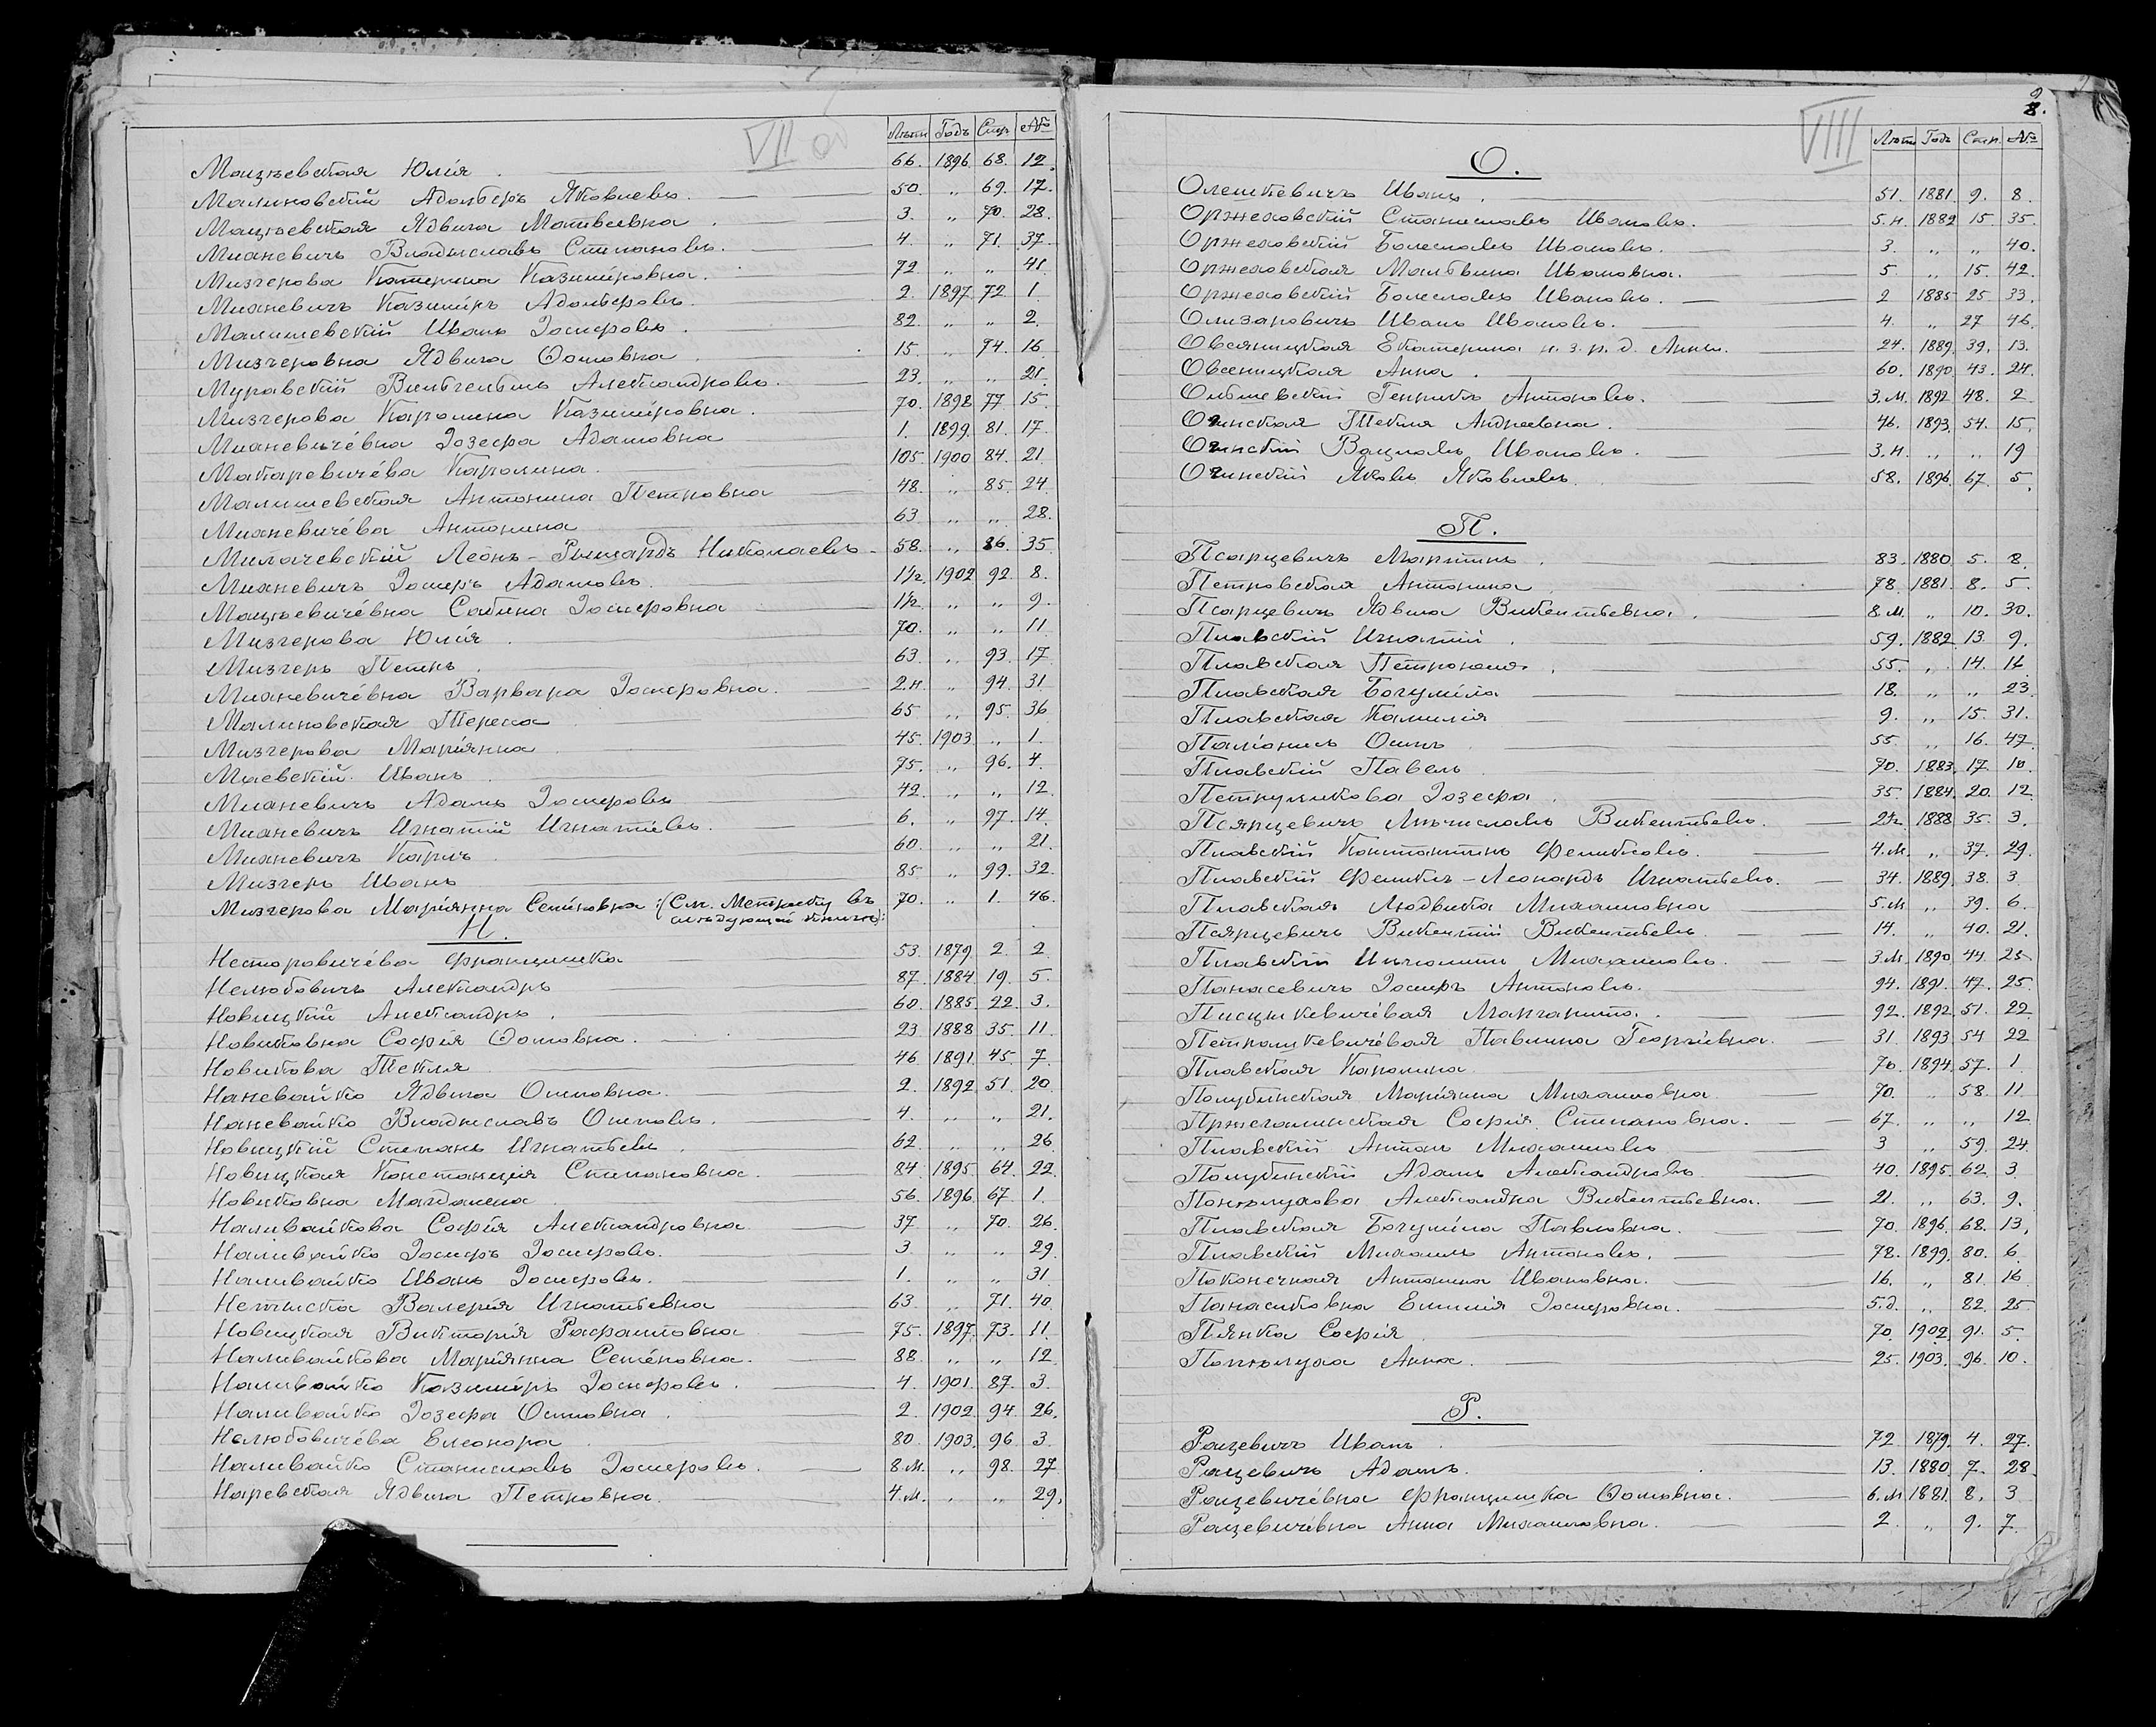 VII об
Лѣтъ Годъ Стр. №
Мацѣевская Юлія 66. 1896. 68. 12.
Малиновскій Адольфъ Яковлевъ. 50. „ 69. 17.
Мацѣевская Ядвига Матвеевна. 3. „ 70. 28.
Міаневичъ Владиславъ Степановъ. 4. „ 71. 37.
Мизгерова Катерина Казимировна. 72. „ „ 41.
Міаневичъ Казимиръ Адольфовъ. 2. 1897. 72. 1.
Малишевскій Иванъ Іосифовъ. 82. „ „ 2.
Мизгеровна Ядвига Ѳомовна 15. „ 74. 16.
Муравскій Вильгельмъ Александровъ. 23. „ „ 21.
Мизгерова Каролина Казимировна. 70. 1898 77 15.
Міаневичéвна Іозефа Адамовна 1. 1899. 81. 17.
Макаревичéва Каролина. 105. 1900 84. 21.
Малишевская Антонина Петровна 48. „ 85. 24.
Міаневичéва Антонина 63 „ „ 28.
Милачевскій Леонъ-Рышардъ Николаевъ. 58. „ 86. 35.
Міаневичъ Іосифъ Адамовъ. 1½. 1902 92. 8.
Мацѣевичéвна Сабина Іосифовна 1½. „ „ 9.
Мизгерова Юлія. 70. „ „ 11
Мизгеръ Петръ. 63 „ 93. 17
Міаневичéвна Варвара Іосифовна. 2.н. „ 94. 31
Малиновская Тереса 65 „ 95. 36
Мизгерова Маріянна 45. 1903. „ 1.
Маевскій Иванъ. 75. „ 96. 4.
Міаневичъ Адамъ Іосифовъ 42. „ „ 12.
Міаневичъ Игнатій Игнатіевъ. 6. „ 97. 14.
Міаневичъ Карлъ 60. „ „ 21.
Мизгеръ Иванъ 85 „ 99. 32.
Мизгерова Маріянна Семеновна :(См. Метрику въ 70. „ 1. 46.
слѣдующей книгѣ):
Н.
Несторовичéва Францишка 53. 1879. 2. 2.
Нелюбовичъ Александръ 87. 1884 19. 5.
Новицкій Александръ. 60. 1885. 22. 3.
Новиковна Софія Ѳомовна. 23. 1888. 35. 11.
Новикова Текля 46. 1891. 45. 7.
Наневайко Ядвига Осиповна. 2. 1892 51. 20.
Наневайко Владиславъ Осиповъ. 4. „ „ 21.
Новицкій Степанъ Игнатьевъ. 62. „ „ 26
Новицкая Констанція Степановна. 84. 1895. 64. 22.
Новиковна Магдалена 56. 1896. 67. 1.
Наливайкова Софія Александровна. 37. „ 70. 26.
Наливайко Іосифъ Іосифовъ. 3 „ „ 29.
Наливайко Иванъ Іосифовъ. 1. „ „ 31
Валерія Игнатьевна 63. „ 71. 40.
Новицкая Викторія Рафаиловна 75. 1897. 73. 11.
Наливайкова Маріянна Семéновна. 88. „ „ 12
Наливайко Казимиръ Іосифовъ. 4. 1901. 87. 3.
Наливайко Іозефа Осиповна. 2. 1902. 94. 26.
Нелюбовичéва Елеонора. 80. 1903. 96. 3.
Наливайко Станиславъ Іосифовъ. 8.м. „ 98. 27
Наревская Ядвига Петровна. 4.м. „ „ 29.
VIIII
9
8.
Лѣтъ Годъ Стр. №
О.
Олешкевичъ Иванъ. 51. 1881. 9. 8.
Оржеховскій Станиславъ Ивановъ. 5.н. 1882. 15. 35.
Оржеховскій Болеславъ Ивановъ. 3. „ „ 40.
Оржеховская Мальвина Ивановна. 5. „ 15. 42.
Оржеховскій Болеславъ Ивановъ. 2 1885. 25. 33.
Олизаровичъ Иванъ Ивановъ. 4. „ 27 46.
Овсяницкая Екатерина н. з. р. д. Анны. 24. 1889. 39. 13.
Овсеницкая Анна. 60. 1890. 43. 24.
Ольшевскій Генрикъ Антоновъ. 3.м. 1892 48. 2
Огинская Текля Андреевна. 46. 1893. 54. 15.
Огинскій Вацлавъ Ивановъ. 3.н. „ „ 19
Огинскій Яковъ Яковлевъ. 58. 1896. 67. 5.
П.
Псарцевичъ Мартинъ. 83. 1880. 5. 8.
Петровская Антонина 78. 1881. 8. 5.
Псарцевичъ Ядвига Викентьевна. 8.м. „ 10. 30.
Плавскій Игнатій. 59. 1882. 13. 9.
Плавская Петронеля. 55. „ 14. 11
Плавская Богумила 18. „ „ 23.
Плавская Камилія 9. „ 15. 31.
Осипъ 55. „ 16. 47.
Плавскій Павелъ 70. 1883. 17. 10.
Петруликова Іозефа. 35. 1884. 20. 12
Псярцевичъ Мѣчиславъ Викентьевъ. 2½. 1888. 35. 3.
Плавскій Константинъ Феликсовъ. 4.м. „ 37. 29.
Плавскій Феликсъ-Леонардъ Игнатьевъ. 34. 1889. 38. 3
Плавская Людвика Михаиловна 5.м „ 39. 6.
Псярцевичъ Викентій Викентьевъ. 14. „ 40. 21.
Плавскій Михаиловъ. 3.м. 1890. 44. 25
Панасевичъ Іосифъ Антоновъ. 94. 1891. 47. 25.
Маргарита. 92. 1892. 51. 22
Петрашкевичéвая Павлина Георгіевна. 31. 1893. 54 22
Плавская Каролина. 70. 1894. 57. 1.
Полубинская Маріянна Михаиловна 70. „ 58. 11
Пржегалинская Софія Степановна. 67. „ „ 12
Плавскій Антонъ Михаиловъ 3 „ 59. 24
Полубинскій Адамъ Александровъ 40. 1895. 62. 3
Александра Викентьевна. 21. „ 63. 9.
Плавская Богумила Павловна. 70. 1896. 68. 13.
Плавскій Михаилъ Антоновъ. 78. 1899. 80. 6
Поконечная Антонина Ивановна. 16. „ 81. 16
Панасиковна Емилія Іосифовна. 5.д. „ 82. 25
Пянка Софія 70. 1902. 91. 5.
Анна. 25. 1903. 96. 10.
Р.
Рацевичъ Иванъ. 72. 1879. 4. 27.
Рацевичъ Адамъ. 13. 1880. 7. 28.
Рацевичéвна Францишка Ѳомовна. 6.м 1881. 8. 3
Рацевичéвна Анна Михаиловна. 2. „ 9. 7.